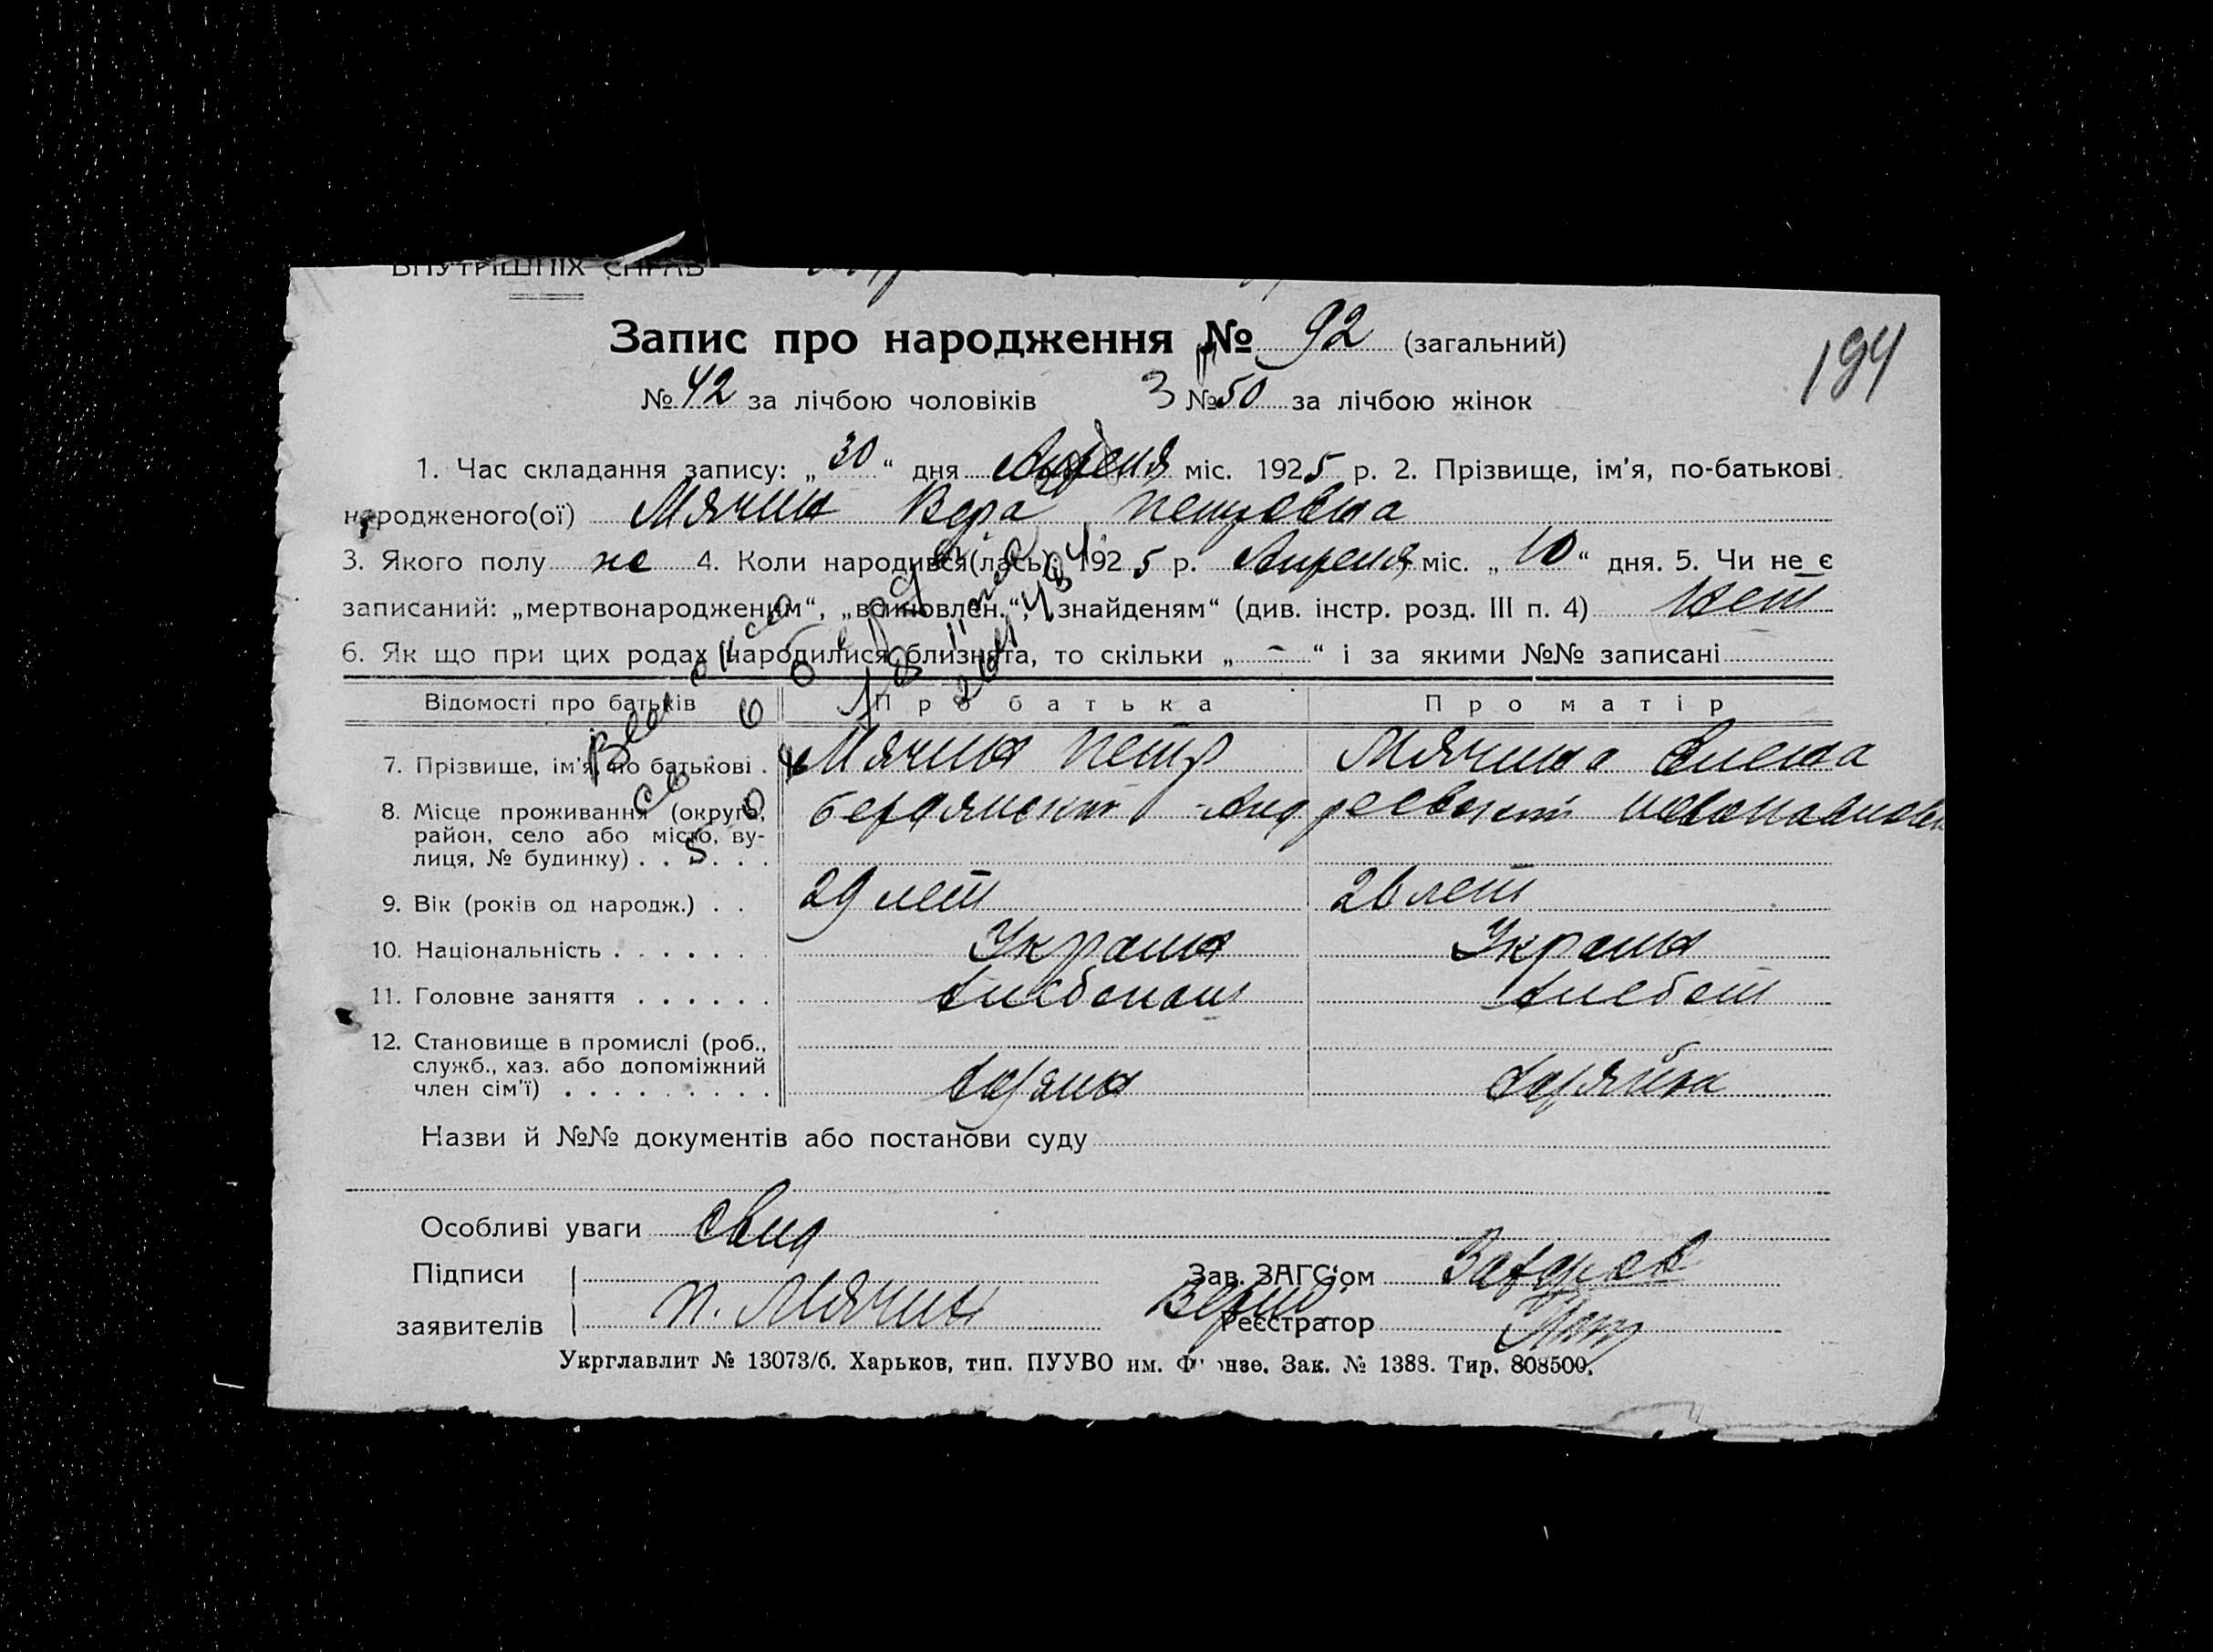 ВНУТРІШНІХ СПРАВ
Запис про народження № 92 (загальний)
194
№ 42 за лічбою чоловіків З № 50 за лічбою жінок
1. Час складання запису: „ 30 “ дня Апреля міс. 1925 р. 2. Прізвище, ім'я, по-батькові
народженого(ої) Мячин Вера Петровна
3. Якого полу же 4. Коли народився(лась): 1925 р. Апреля міс. „ 10 “ дня. 5. Чи не є
записаний: „мертвонародженим“, „всиновлен.“, „знайденям“ (див. інстр. розд. III п. 4) Нет
6. Як що при цих родах народилися близнята, то скільки „ - “ і за якими №№ записані
Відомості про батьків Про батька Про матір
7. Прізвище, ім'я, по батькові . Мячин Петр Мячина Елена
8. Місце проживання (округа, район, село або місто, вулиця, № будинку) . . . . . Бердянский Андреевский
9. Вік (років од народж.) . . 29 лет 26 лет
10. Національність . . . . . . . Украин Украин
11. Головне заняття . . . . . . Хлебопаш Хлебоп
12. Становище в промислі (роб., служб., хаз. або допоміжний член сім'ї) . . . . . . . . . Хозяин Хозяйка
Назви й №№ документів або постанови суду
Особливі уваги свид
Підписи Зав. ЗАГС'ом
заявителів П. Мячин Верно Реєстратор
Укрглавлит № 13073/б. Харьков, тип. ПУУВО им. Фрунзе. Зак. № 1388. Тир. 808500.